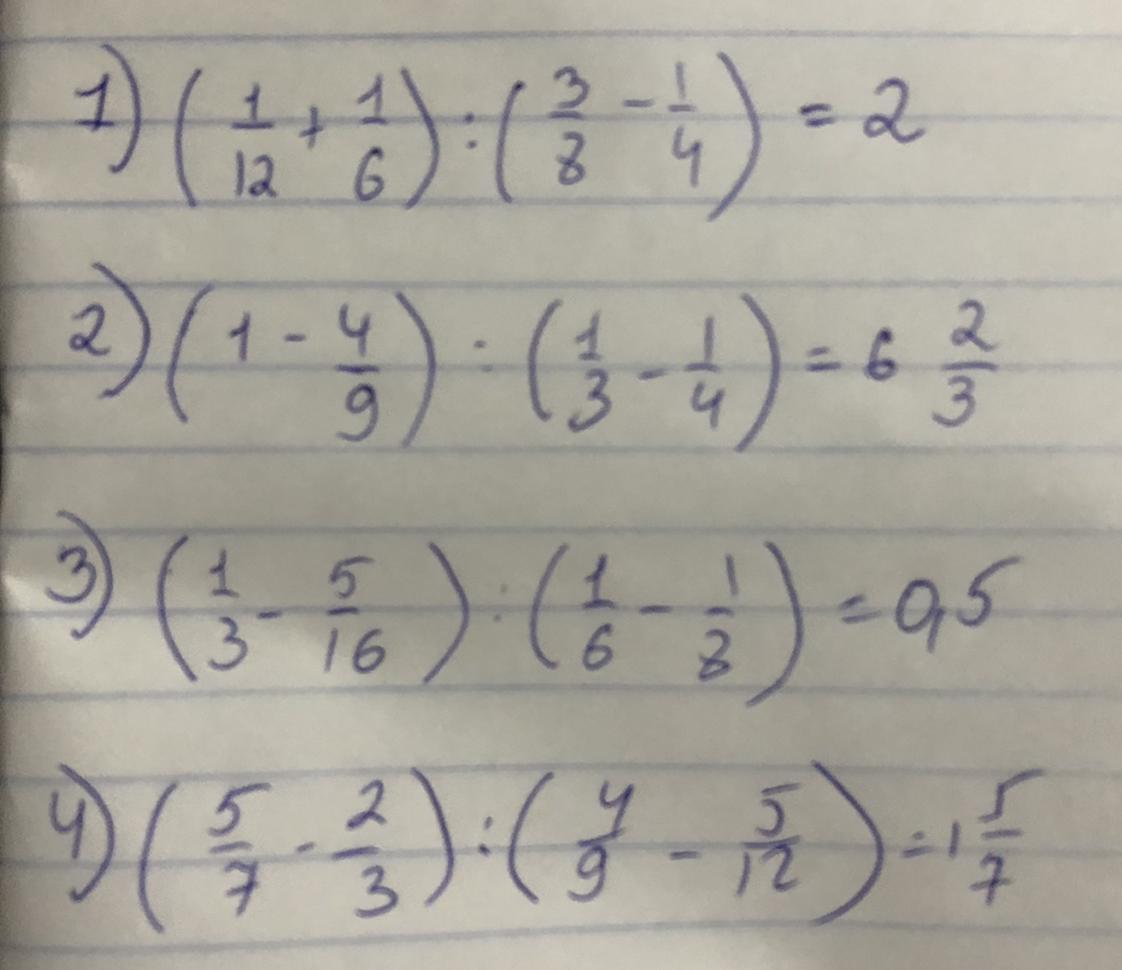 1) (1/12 + 1/6) : (3/8 - 1/4) = 2
2) (1 - 4/9) : (1/3 - 1/4) = 6 2/3
3) (1/3 - 5/16) : (1/6 - 1/8) = 0,5
4) (5/7 - 2/3) : (4/9 - 5/12) = 1 5/7